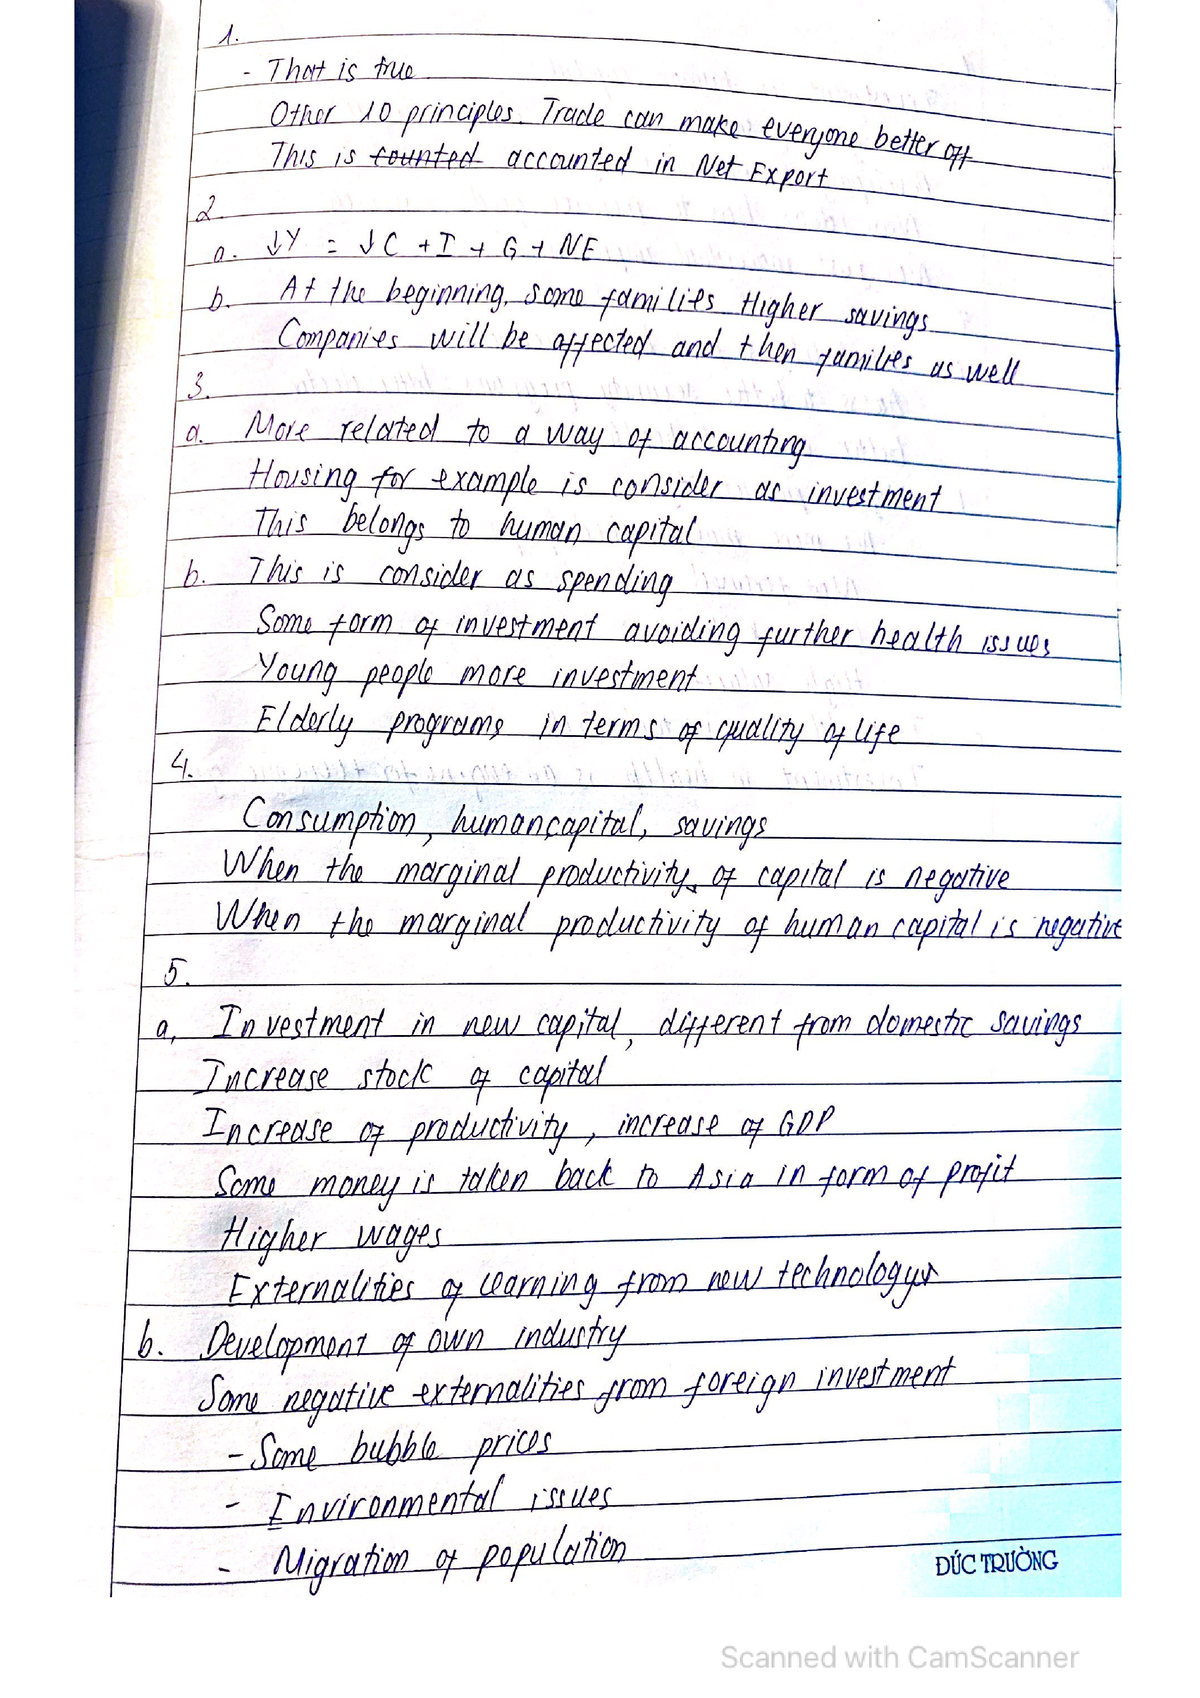 1.
- That is true
Other 10 principles. Trade can make everyone better off
This is counted accounted in Net Export
2.
a. ↓Y = ↓C + I + G + NE
b. At the beginning, some families Higher savings
Companies will be affected and then families as well
3.
a. More related to a way of accounting
Housing for example is consider as investment
This belongs to human capital
b. This is consider as spending
Some form of investment avoiding further health issues
Young people more investment
Elderly programs in terms of quality of life
4.
Consumption, human capital, savings
When the marginal productivity of capital is negative
When the marginal productivity of human capital is negative
5.
a, Investment in new capital, different from domestic savings
Increase stock of capital
Increase of productivity, increase of GDP
Some money is taken back to Asia in form of profit
Higher wages
Externalities of learning from new technology
b. Development of own industry
Some negative externalities from foreign investment
- Some bubble prices
- Environmental issues
- Migration of population
ĐỨC TRƯỜNG
Scanned with CamScanner